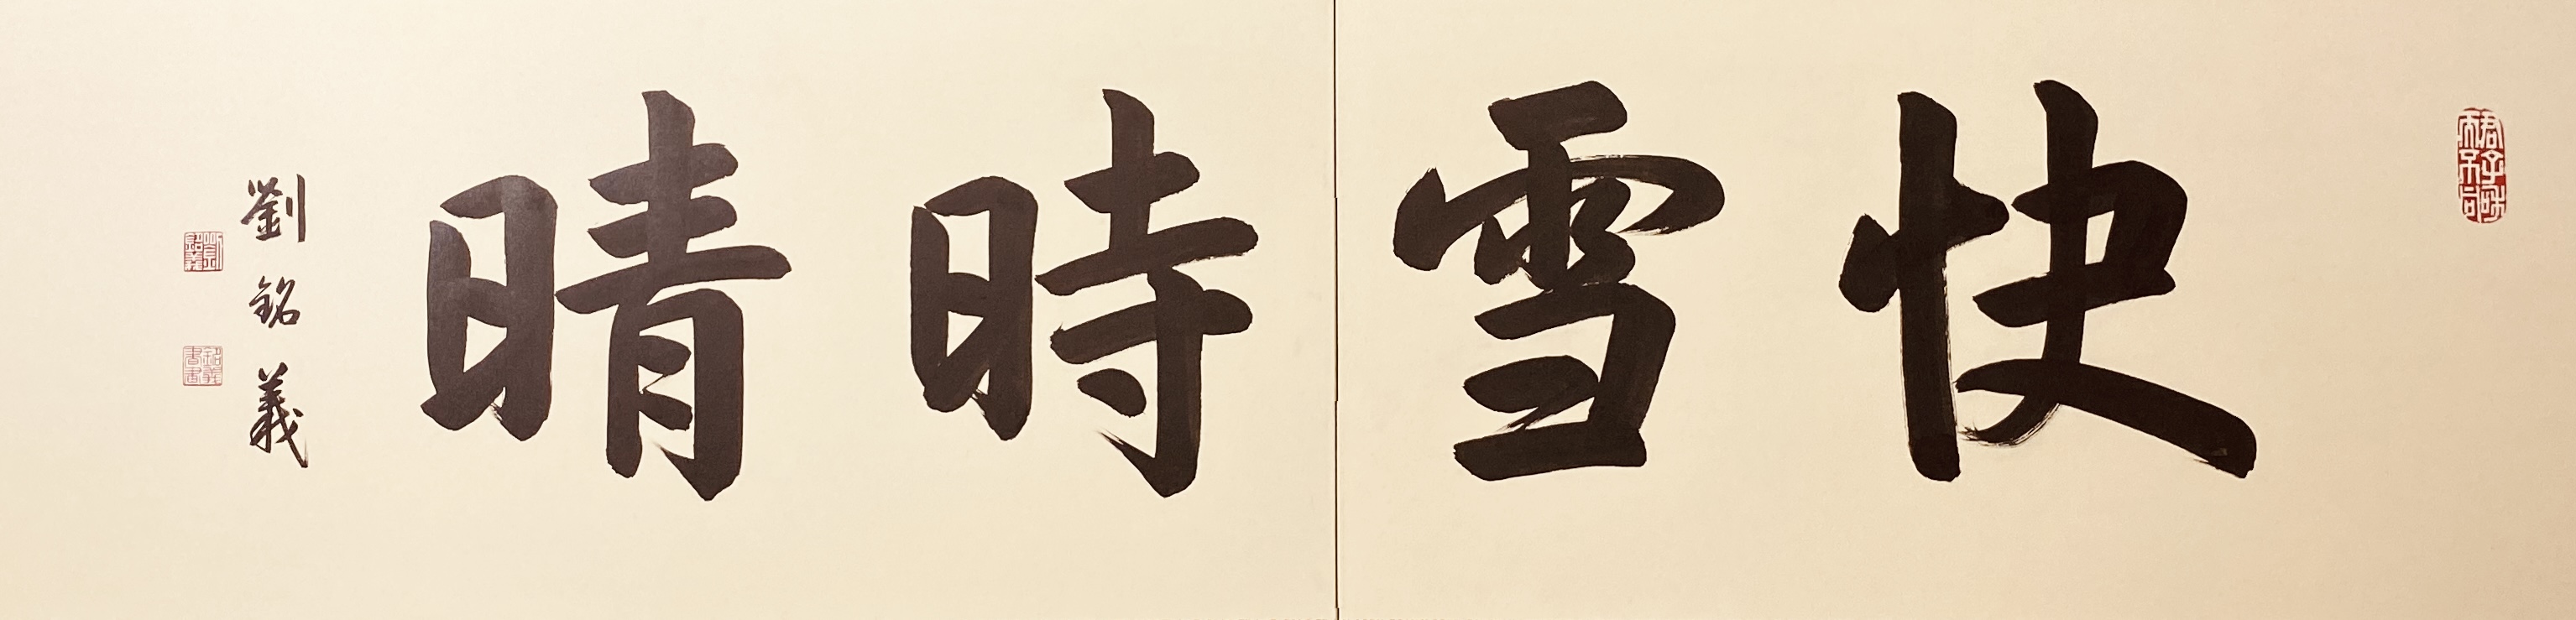 快雪時晴
劉銘義